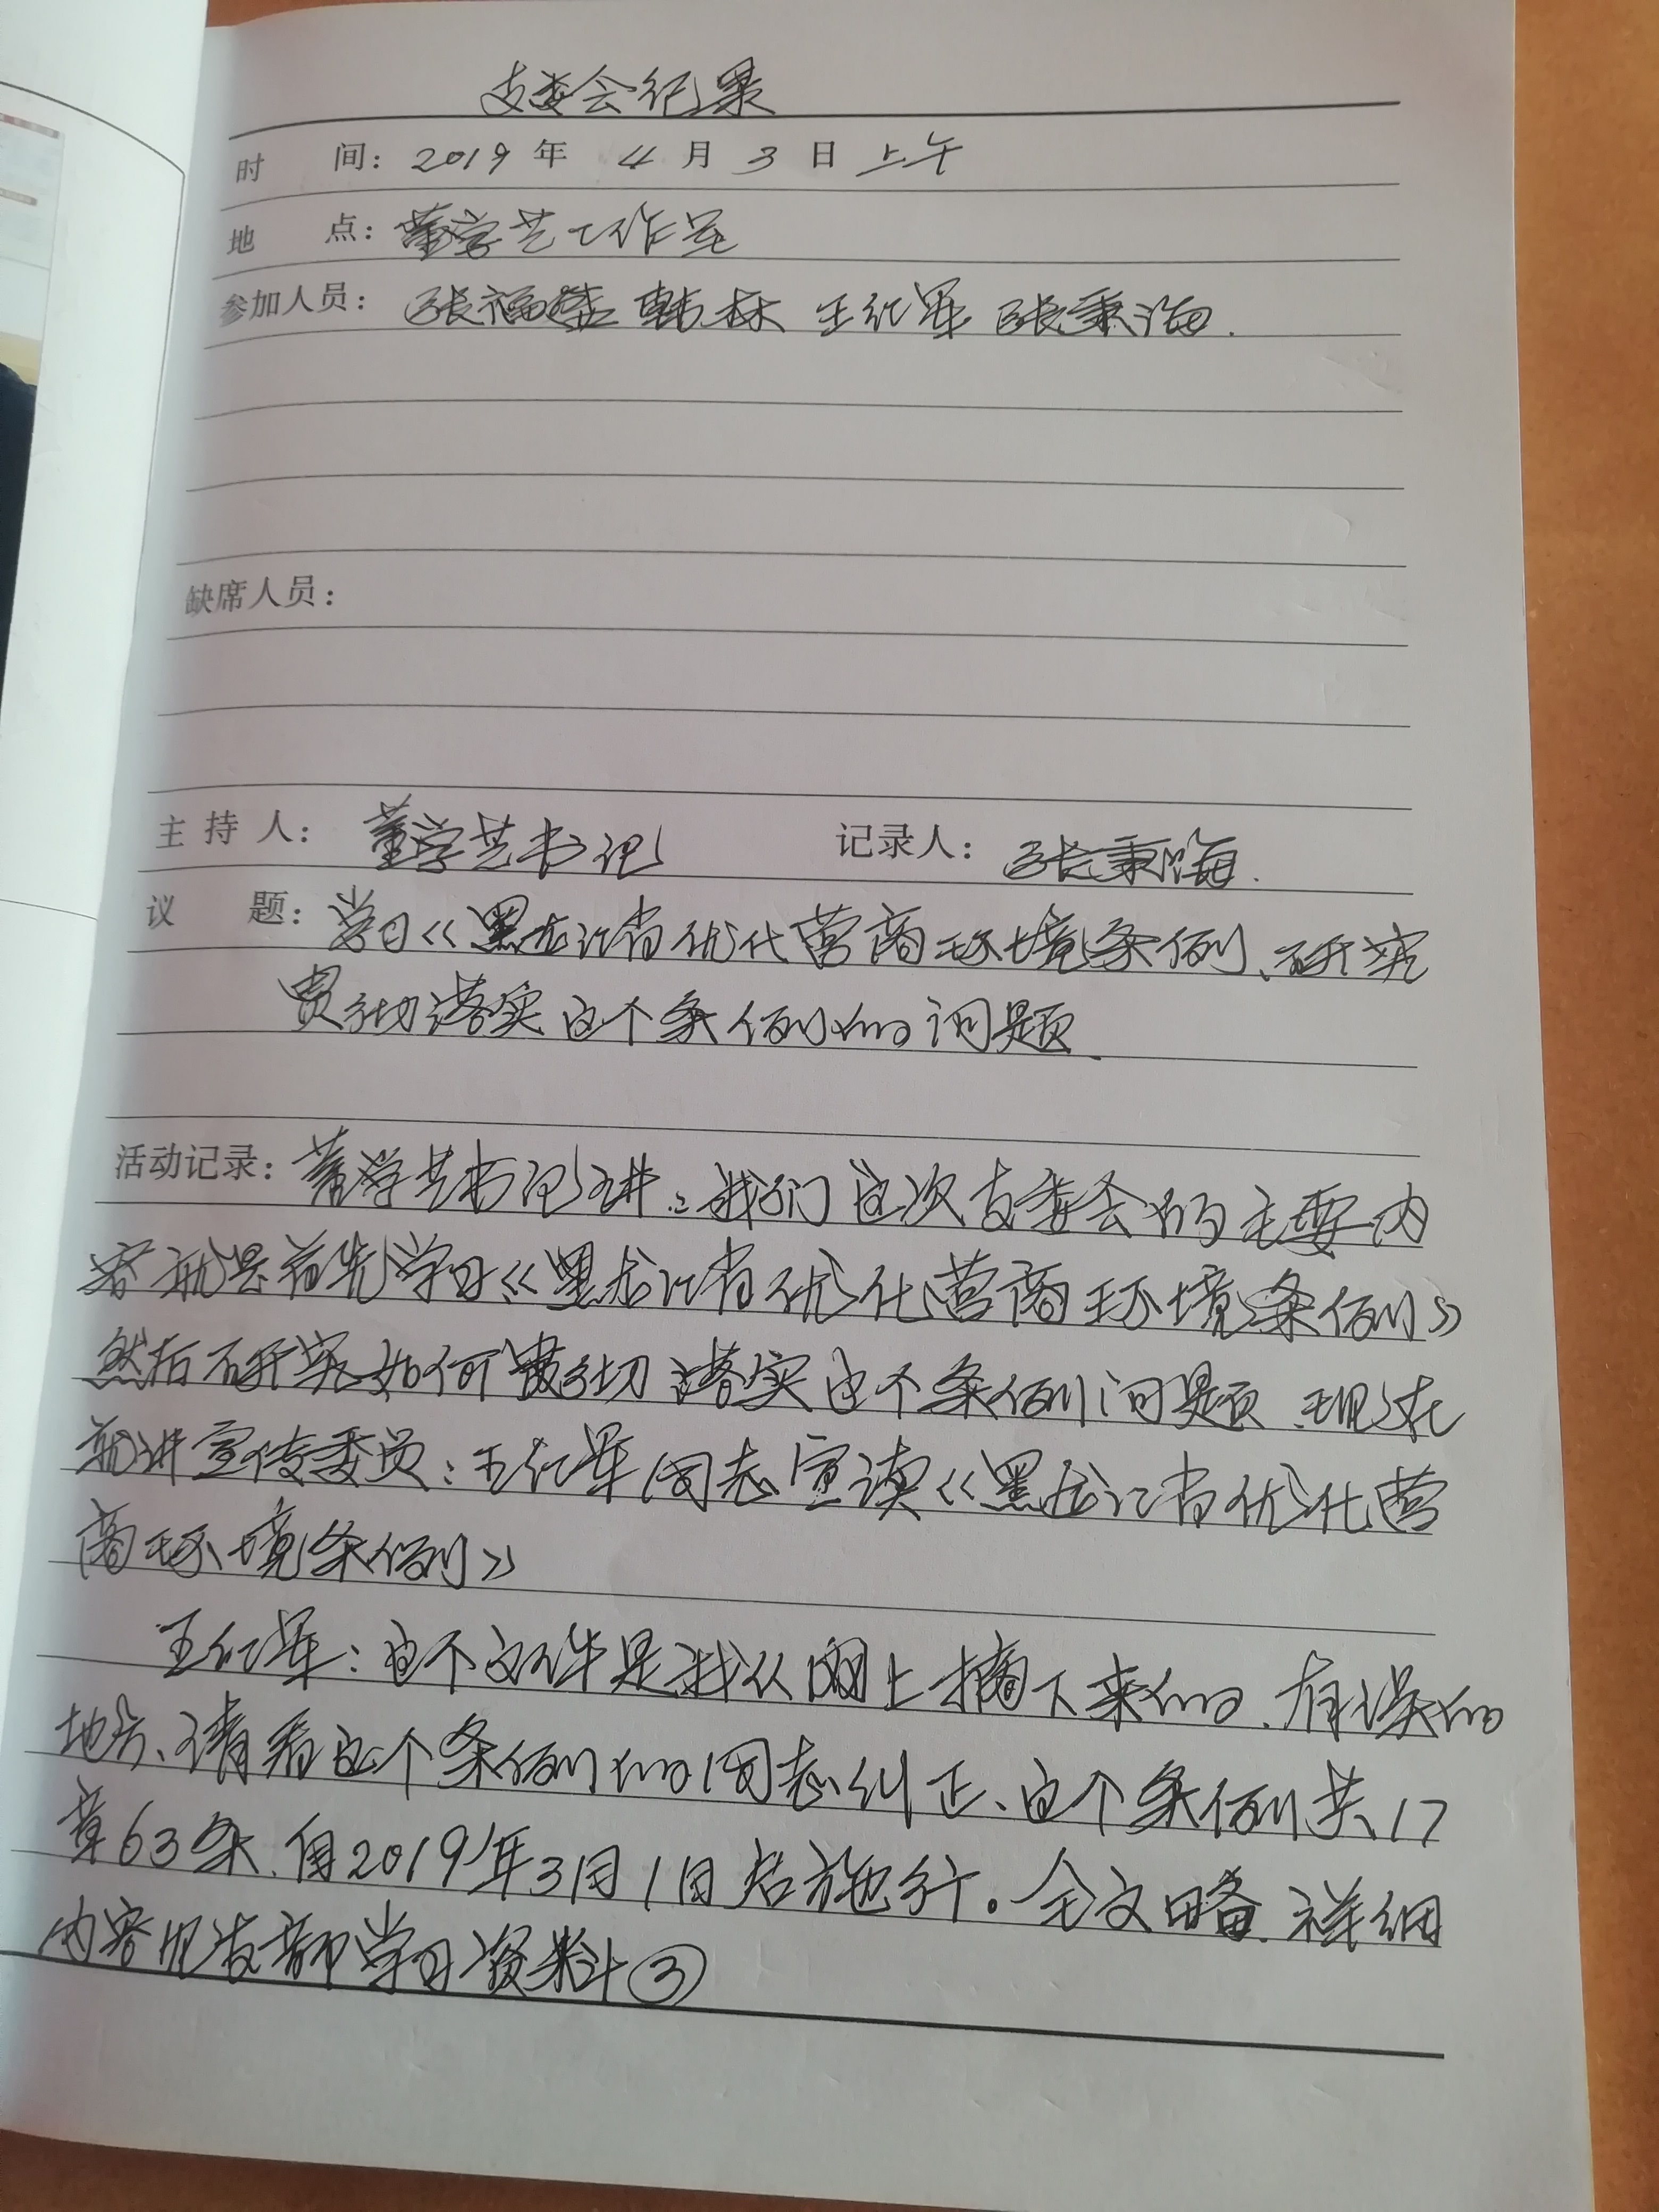 支委会纪录
时 间：2019 年 4 月 3 日 上午
地 点：董学艺工作室
参加人员： 张福 韩林 王红军 张秉海.
缺席人员：
主 持 人： 董学艺书记 记录人： 张秉海.
议 题：学习《黑龙江省优化营商环境条例、研究
贯彻落实这个条例的问题、
活动记录：董学艺书记讲：我们这次支委会的主要内
容就是首先学习《黑龙江省优化营商环境条例》
然后研究如何贯彻落实这个条例问题、现在
就讲宣传委员：王红军同志宣读《黑龙江省优化营
商环境条例》
王红军：这个文件是我从网上摘下来的、有误的
地方、请看这个条例的同志纠正、这个条例共17
章63条、自2019年3月1日起施行。全文略、详细
内容见支部学习资料③